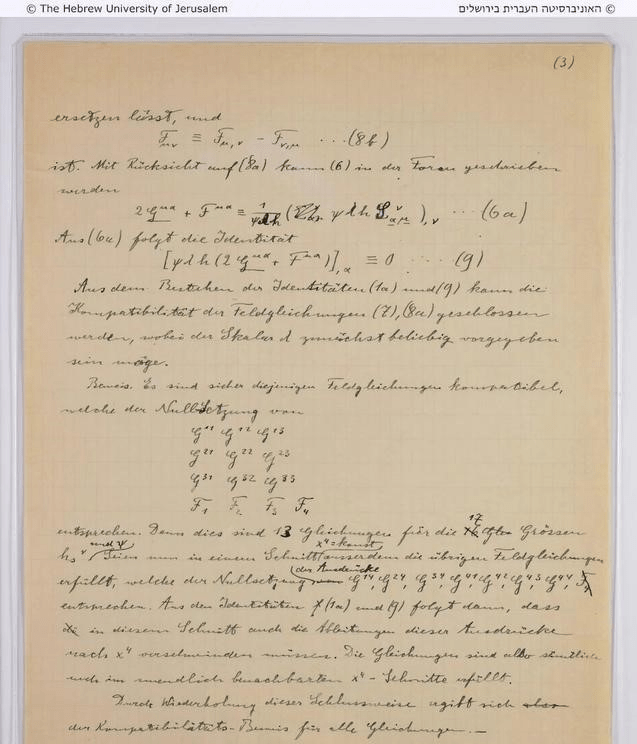 © The Hebrew University of Jerusalem © האוניברסיטה העברית בירושלים
(3)
ersetzen lässt, und
F_μν ≡ F_μ,ν − F_ν,μ ···(8b)
ist. Mit Rücksicht auf (8a) kann (6) in der Form geschrieben
werden
2 G^μα + F^μα ≡ 1/ψλh ( ψ λ h ),ν ··· (6a)
Aus (6a) folgt die Identität
[ψ λ h (2 G^μα + F^μα)],α ≡ 0 ···· (9)
Aus dem Bestehen der Identitäten (1a) und (9) kann die
Kompatibilität der Feldgleichungen (7), (8a) geschlossen
werden, wobei der Skalar λ zunächst beliebig vorgegeben
sein möge.
Beweis. Es sind sicher diejenigen Feldgleichungen kompatibel,
welche der Nullsetzung von
G^11 G^12 G^13
G^21 G^22 G^23
G^31 G^32 G^33
F_1 F_2 F_3 F_4
entsprechen. Denn dies sind 13 Gleichungen für die 17 Grössen
und ψ x^4 = konst
h_s^ν. Seien nun in einem Schnitt ausserdem die übrigen Feldgleichungen
der Ausdrücke
erfüllt, welche der Nullsetzung G^14, G^24, G^34, G^41, G^42, G^43, G^44,
entsprechen. Aus den Identitäten (1a) und (9) folgt dann, dass
in diesem Schnitt auch die Ableitungen dieser Ausdrücke
nach x^4 verschwinden müssen. Die Gleichungen sind also sämtlich
auch im unendlich benachbarten x^4-Schnitte erfüllt.
Durch Wiederholung dieser Schlussweise ergibt sich also
der Kompatibilitäts-Beweis für alle Gleichungen.—